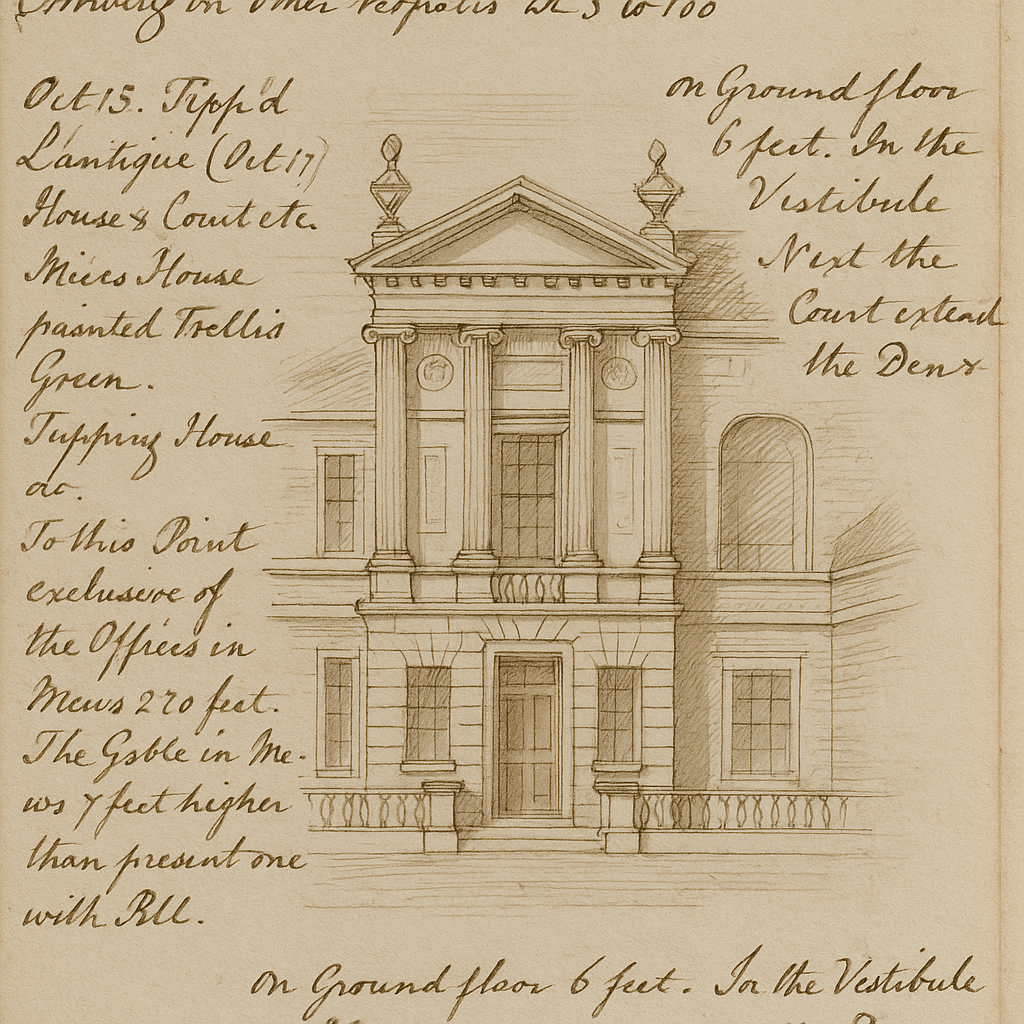 on other
to 100
Oct 15. Tipp'd
Lantique (Oct 17)
House & Court etc.
House
painted Trellis
Green.
Tupping House
To this Point
exclusive of
the Offiees in
Mews 270 feet.
The Gable in Me-
ws 7 feet higher
than present one
with
on Ground floor
6 feet. In the
Vestibule
Next the
Court extend
the Den &
on Ground floor 6 feet. In the Vestibule